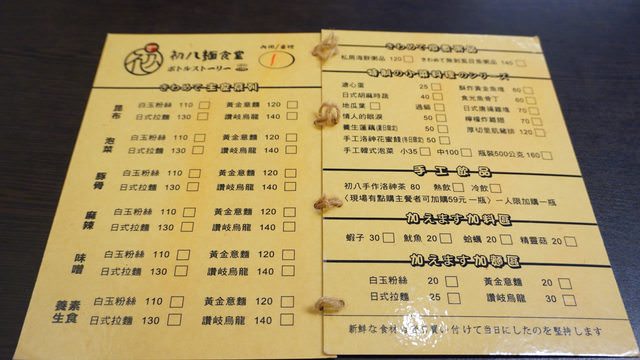 初八麵食堂
ボトルストーリー
內用/桌號
1
きわめて主食系列
昆布
白玉粉絲 110 □ 黃金意麵 120 □
日式拉麵 130 □ 讚岐烏龍 140 □
泡菜
白玉粉絲 110 □ 黃金意麵 120 □
日式拉麵 130 □ 讚岐烏龍 140 □
豚骨
白玉粉絲 110 □ 黃金意麵 120 □
日式拉麵 130 □ 讚岐烏龍 140 □
麻辣
白玉粉絲 110 □ 黃金意麵 120 □
日式拉麵 130 □ 讚岐烏龍 140 □
味噌
白玉粉絲 110 □ 黃金意麵 120 □
日式拉麵 130 □ 讚岐烏龍 140 □
養生素食
白玉粉絲 110 □ 黃金意麵 120 □
日式拉麵 130 □ 讚岐烏龍 140 □
私房海鮮粥品 120 □ きわめて無剝風目魚粥品 140 □
特制の小菜料理のシリーズ
溏心蛋 25 □ 酥炸黃金魚塊 60 □
日式胡麻時蔬 40 □ 食光魚骨丁 60 □
地瓜葉 □ 過貓 □ 日式唐揚雞塊 70 □
情人的眼淚 50 □ 檸檬炸雞翅 70 □
養生蓮藕(季日限定) 50 □ 厚切里肌豬排 120 □
手工洛神花蜜餞(季日限定) 50 □
手工韓式泡菜 小35 □ 中100 □ 瓶裝500公克 160 □
手工飲品
初八手作洛神茶 80 熱飲 □ 冷飲 □
〈現場有點購主餐者可加購59元 一瓶〉一人限加購一瓶
加えます加料區
蝦子 30 □ 魷魚 20 □ 蛤蠣 20 □ 精靈菇 20 □
加えます加麵區
白玉粉絲 20 □ 黃金意麵 20 □
日式拉麵 25 □ 讚岐烏龍 30 □
新鮮な食材 買い付けて当日にしたのを堅持します